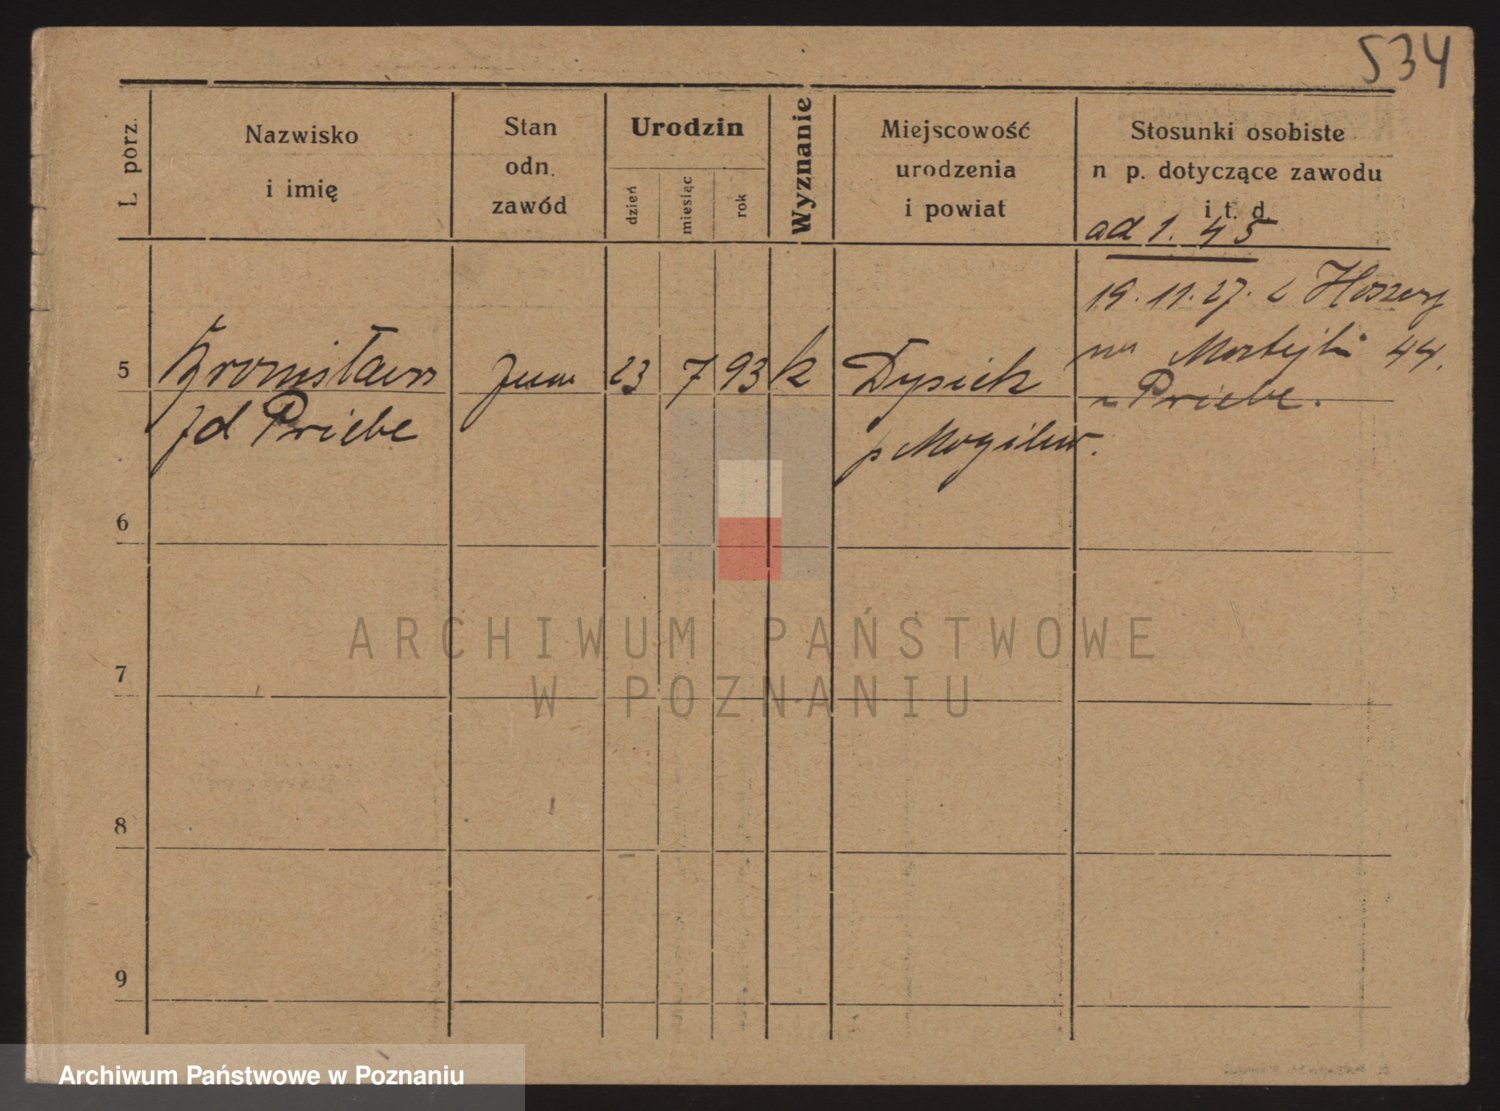 534
L. porz.
Nazwisko
i imię
Stan
odn.
zawód
Urodzin
dzień
miesiąc
rok
Wyznanie
Miejscowość
urodzenia
i powiat
Stosunki osobiste
n p. dotyczące zawodu
i t. d
ad 1. 4 5
19. 11. 27. z
44.
u Priebe.
5
Bronisława
zd Priebe
23 7 93 k
p Mogilno.
6
7
8
9
ARCHIWUM PAŃSTWOWE
W POZNANIU
Archiwum Państwowe w Poznaniu